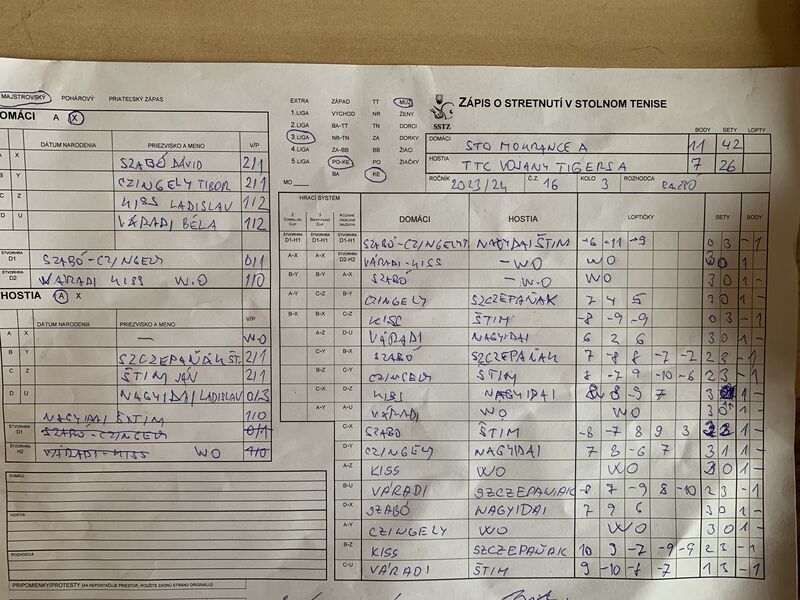 MAJSTROVSKÝ POHÁROVÝ PRIATEĽSKÝ ZÁPAS
DOMÁCI A X
DÁTUM NARODENIA PRIEZVISKO A MENO V/P
A X SZABÓ DÁVID 2/1
B Y CZINGELY TIBOR 2/1
C Z KISS LADISLAV 1/2
D U VÁRADI BÉLA 1/2
ŠTVORHRA D1 SZABÓ-CZINGELY 0/1
ŠTVORHRA D2 VÁRADI KISS W.O 1/0
HOSTIA A X
DÁTUM NARODENIA PRIEZVISKO A MENO V/P
A X — W.O
B Y SZCZEPAŇÁK ŠT. 2/1
C Z ŠTIM JÁN 2/1
D U NAGYIDAI LADISLAV 0/3
NAGYIDAI ŠTIM 1/0
D1 SZABÓ-CZINGELY 0/1
ŠTVORHRA H2 VÁRADI-KISS WO
DOMÁCI
HOSTIA
ROZHODCA
PRIPOMIENKY/PROTESTY (AK NEPOSTAČUJE PRIESTOR, POUŽITE ZADNÚ STRANU ORIGINÁLU)
EXTRA ZÁPAD TT MUŽI
1.LIGA VÝCHOD NR ŽENY
2.LIGA BA-TT TN DORCI
3.LIGA NR-TN ZA DORKY
4.LIGA ZA-BB BB ŽIACI
5.LIGA PO-KE PO ŽIAČKY
MO BA KE
SSTZ
ZÁPIS O STRETNUTÍ V STOLNOM TENISE
BODY SETY LOPTY
DOMÁCI STO MOKRANCE A 11 42
HOSTIA TTC VOJANY TIGERS A 7 26
ROČNÍK 2023/24 Č.Z. 16 KOLO 3 ROZHODCA
HRACÍ SYSTÉM
DOMÁCI HOSTIA LOPTIČKY SETY BODY
ŠTVORHRA D1-H1 ŠTVORHRA D1-H1 D1-H1 SZABÓ-CZINGELY NAGYIDAI ŠTIM -6 -11 -9 0 3 - 1
A-X A-X D2-H2 VÁRADI-KISS - WO WO 3 0 1 -
B-Y B-Y A-X SZABÓ - W.O WO 3 0 1 -
A-Y C-Z B-Y CZINGELY SZCZEPAŇÁK 7 4 5 3 0 1 -
B-X B-X C-Z KISS ŠTIM -8 -9 -9 0 3 - 1
A-Z D-U VÁRADI NAGYIDAI 6 2 6 3 0 1 -
C-Y B-X SZABÓ SZCZEPAŇAK 7 -8 8 -7 -2 2 3 - 1
B-Z C-Y CZINGELY ŠTIM 8 -7 9 -10 -6 2 3 - 1
C-X D-Z KISS NAGYIDAI 8 8 9 7 3 1 -
A-Y A-U VÁRADI WO WO 3 0 1 -
C-X SZABÓ ŠTIM -8 -7 8 9 3 3 2 1 -
D-Y CZINGELY NAGYIDAI 7 8 -6 7 3 1 1 -
A-Z KISS WO WO 3 0 1 -
B-U VÁRADI SZCZEPANIAK -8 7 -9 8 -10 2 3 - 1
D-X SZABÓ NAGYIDAI 7 9 6 3 0 1 -
A-Y CZINGELY WO WO 3 0 1 -
B-Z KISS SZCZEPAŇAK 10 9 -7 -9 -9 2 3 - 1
C-U VÁRADI ŠTIM 9 -10 -8 -7 1 3 - 1